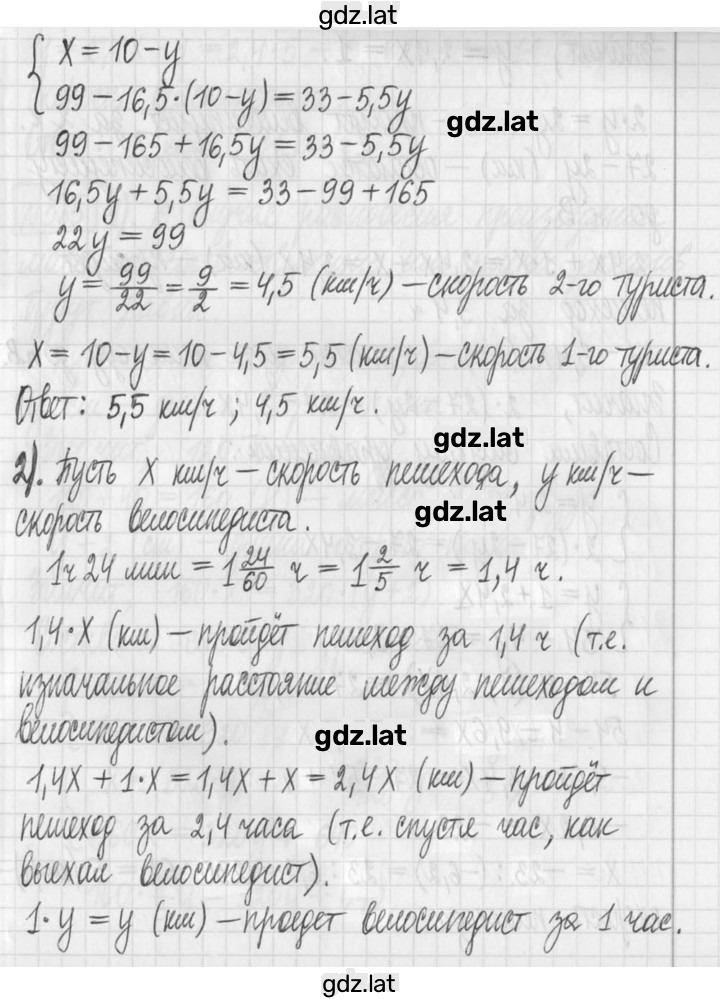 gdz.lat
{ x = 10 – y
99 – 16,5·(10–y) = 33 – 5,5y
gdz.lat
99 – 165 + 16,5y = 33 – 5,5y
16,5y + 5,5y = 33 – 99 + 165
22y = 99
y = 99/22 = 9/2 = 4,5 (км/ч) – скорость 2-го туриста.
x = 10 – y = 10 – 4,5 = 5,5 (км/ч) – скорость 1-го туриста.
Ответ: 5,5 км/ч ; 4,5 км/ч.
gdz.lat
2). Пусть x км/ч – скорость пешехода, y км/ч –
gdz.lat
скорость велосипедиста.
1ч 24 мин = 1 24/60 ч = 1 2/5 ч = 1,4 ч.
1,4·x (км) – пройдёт пешеход за 1,4 ч (т.е.
изначальное расстояние между пешеходом и
велосипедистом).
gdz.lat
1,4x + 1·x = 1,4x + x = 2,4x (км) – пройдёт
пешеход за 2,4 часа (т.е. спустя час, как
выехал велосипедист).
1·y = y (км) – проедет велосипедист за 1 час.
gdz.lat